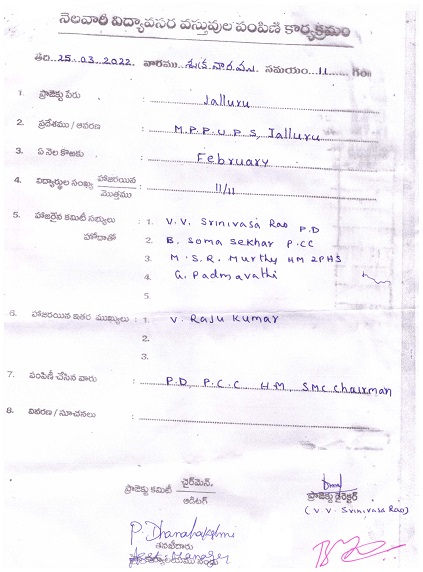 నెలవారీ విద్యావసర వస్తువుల పంపిణీ కార్యక్రమం
తేది..25.03.2022. వారము..శుక్రవారము. సమయం..11......గం॥
1. ప్రాజెక్టు పేరు : Jalluru
2. ప్రదేశము / ఆవరణ : M.P.P.U.P.S, Jalluru
3. ఏ నెల కొరకు : February
4. విద్యార్థుల సంఖ్య హాజరయిన / మొత్తము : 11/11
5. హాజరైన కమిటీ సభ్యులు : 1. V.V. Srinivasa Rao P.D
హోదాతో 2. B. Soma Sekhar P.CC
3. M.S.R. Murthy HM ZPHS
4. G. Padmavathi
5.
6. హాజరయిన ఇతర ముఖ్యులు : 1. V. Raju Kumar
2.
3.
7. పంపిణీ చేసిన వారు : P.D, P.C.C H.M, SMC Chairman
8. వివరణ / సూచనలు :
ప్రాజెక్టు కమిటీ చైర్‌మెన్. / ఆడిటర్
ప్రాజెక్టు డైరెక్టర్
(V.V. Srinivasa Rao)
P. Dhanalakshmi